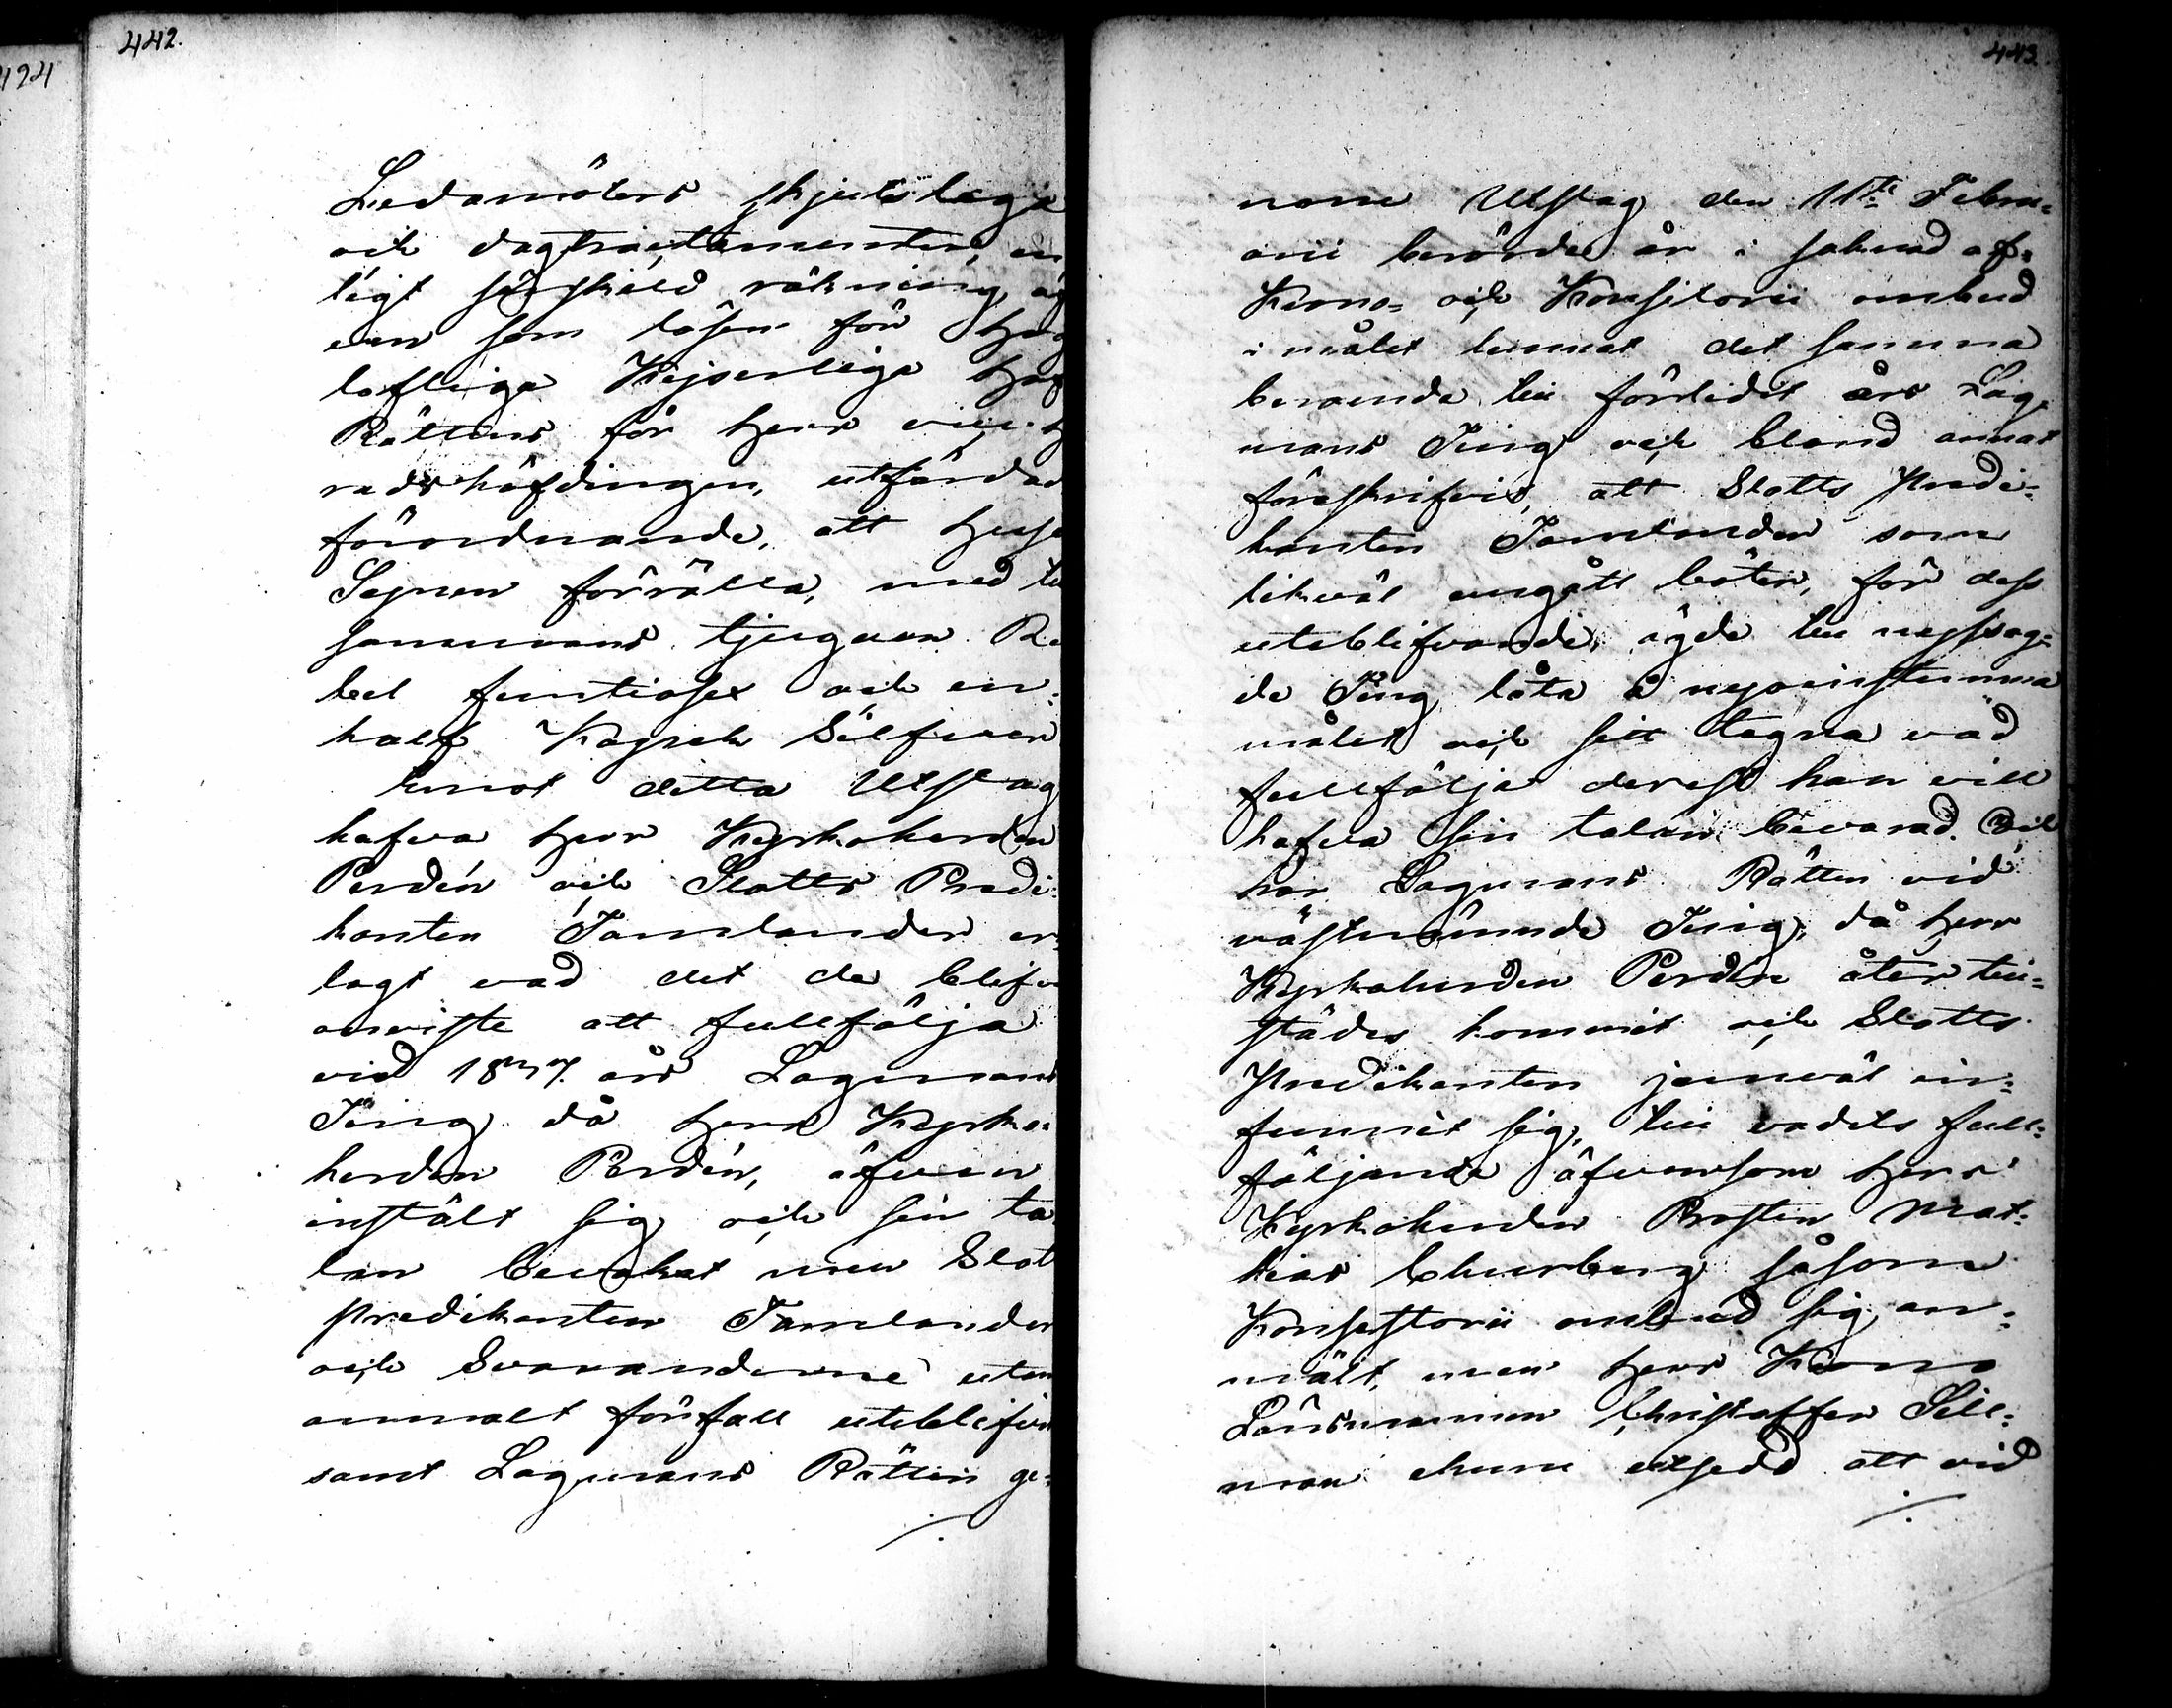 424
442.
Ledamöters skjutslega
och dagtractamenten, en
ligt särskild räkning, äf
ven som lösen för Hög
lofliga Kejserliga Hof
Rättens för Herr vice H
radshöfdingen, utfärdad
förordnande, att Huse
Synen förrätta, med till
sammans tjuguen Ru
bel femtiosex och en-
half Kopek Silfver
emot detta Utslag
hafva Herr Kyrkoherden
Perdén och Slotts Predi-
kanten Tamlander er-
lagt vad det de blifv
anviste att fullfölja
vid 1837. års Lagmans
Ting då Herr Kyrko-
herden Perdén, äfven
instält sig och sin ta
lan bevakat men Slot
predikanten Tamlander
och Svaranderne utan
anmält förfall uteblifvit
samt Lagmans Rätten ge-
443.
nom Utslag den 11te Febru-
arii berörde år i saknad af
Krono- och Konsistorii ombud
i målet lemnat det samma
beroende till förledit års Lag-
mans Ting och bland annat
föreskrifvit, att Slotts Predi-
kanten Tamlander som
likväl undgått böter, för dess
uteblifvande, ägde till nyssag-
de Ting låta å nyo instämma
målet och sitt tagna vad
fullfölja derest han vill
hafva sin talan bevarad. Och
har Lagmans Rätten vid
västnämnde Ting, då Herr
Kyrkoherden Perdén åter till-
städes kommit och Slotts
Predikanten jemväl in-
funnit sig, till vadets full-
följande äfvensom Herr
Kyrkoherden Prosten Mat-
hias Churberg såsom
Konsistorii ombud sig an-
mält, men Herr Krono
Länsmannen Christoffer Sill-
man ehuru utsedd att vid